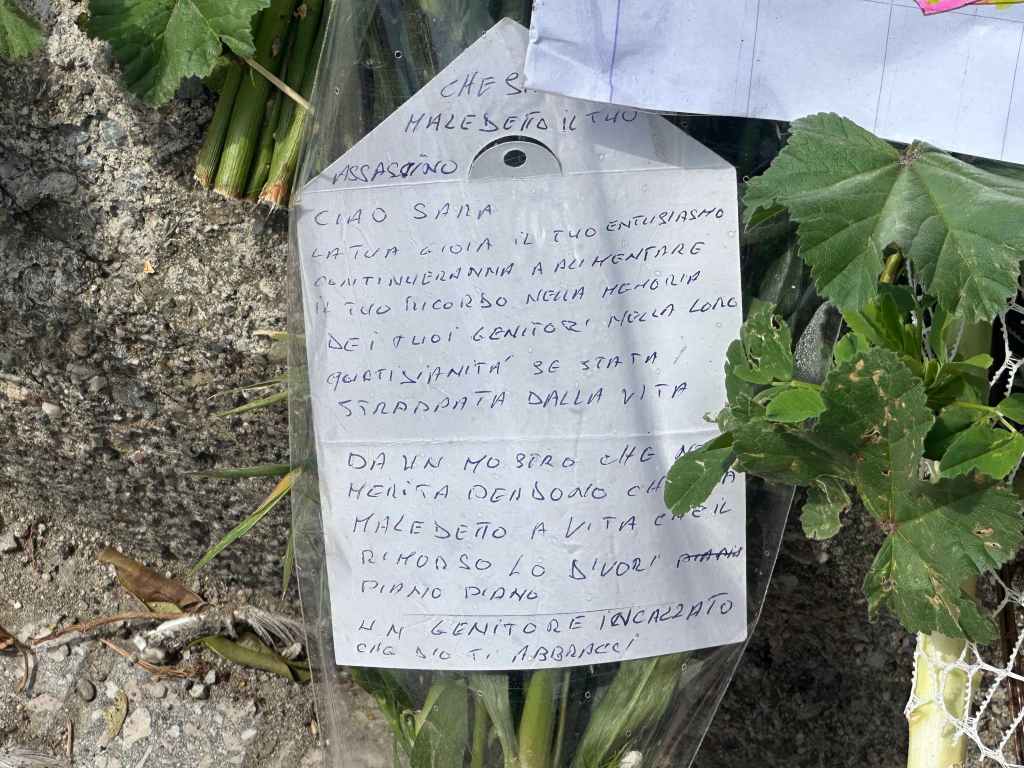 CHE
MALEDETTO IL TUO
ASSASSINO
CIAO SARA
LA TUA GIOIA IL TUO ENTUSIASMO
CONTINUERANNA A ALIMENTARE
IL TUO RICORDO NELLA MEMORIA
DEI TUOI GENITORI NELLA LORO
QUOTIDIANITÁ SE STATA
STRAPPATA DALLA VITA
DA UN MOSTRO CHE
MERITA PERDONO
MALEDETTO A VITA CHE IL
RIMORSO LO DIVORI
PIANO PIANO
UN GENITORE INCAZZATO
CHE DIO TI ABBRACCI